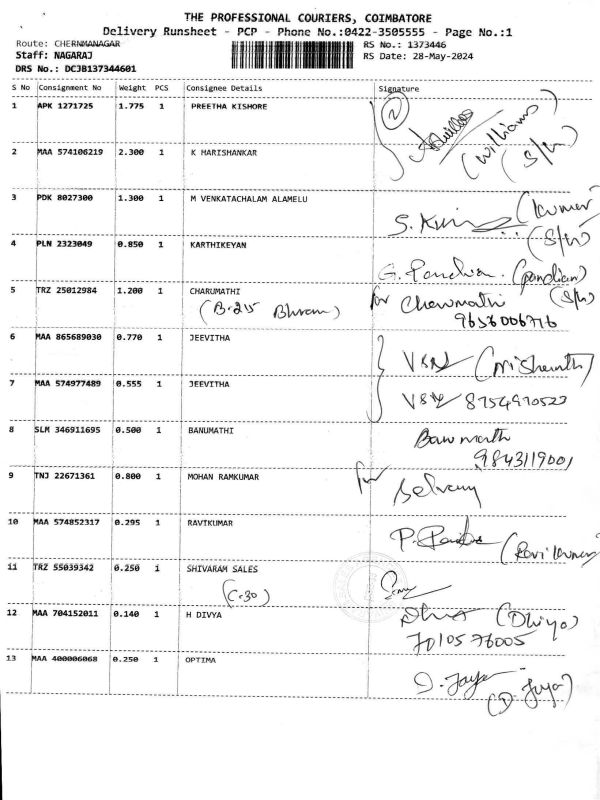 THE PROFESSIONAL COURIERS, COIMBATORE
Delivery Runsheet - PCP - Phone No.:0422-3505555 - Page No.:1
Route: CHERNMANAGAR
RS No.: 1373446
Staff: NAGARAJ
RS Date: 28-May-2024
DRS No.: DCJB137344601
S No Consignment No Weight PCS Consignee Details Signature
1 APK 1271725 1.775 1 PREETHA KISHORE
2
(Williams)
(S/h)
2 MAA 574106219 2.300 1 K HARISHANKAR
3 PDK 8027300 1.300 1 M VENKATACHALAM ALAMELU
(Kumar)
(S/h)
4 PLN 2323049 0.850 1 KARTHIKEYAN
G. Pandian (pandian)
(S/h)
5 TRZ 25012984 1.200 1 CHARUMATHI
for Charumathi
9656006776
6 MAA 865689030 0.770 1 JEEVITHA
7 MAA 574977489 0.555 1 JEEVITHA
8754970523
8 SLM 346911695 0.500 1 BANUMATHI
9843119001
9 TNJ 22671361 0.800 1 MOHAN RAMKUMAR
for
10 MAA 574852317 0.295 1 RAVIKUMAR
(Ravi Kumar)
11 TRZ 55039342 0.250 1 SHIVARAM SALES
(C-30)
12 MAA 704152011 0.140 1 H DIVYA
(Dhiya)
7010576005
13 MAA 400006068 0.250 1 OPTIMA
D. Jaya
(D. Jaya)